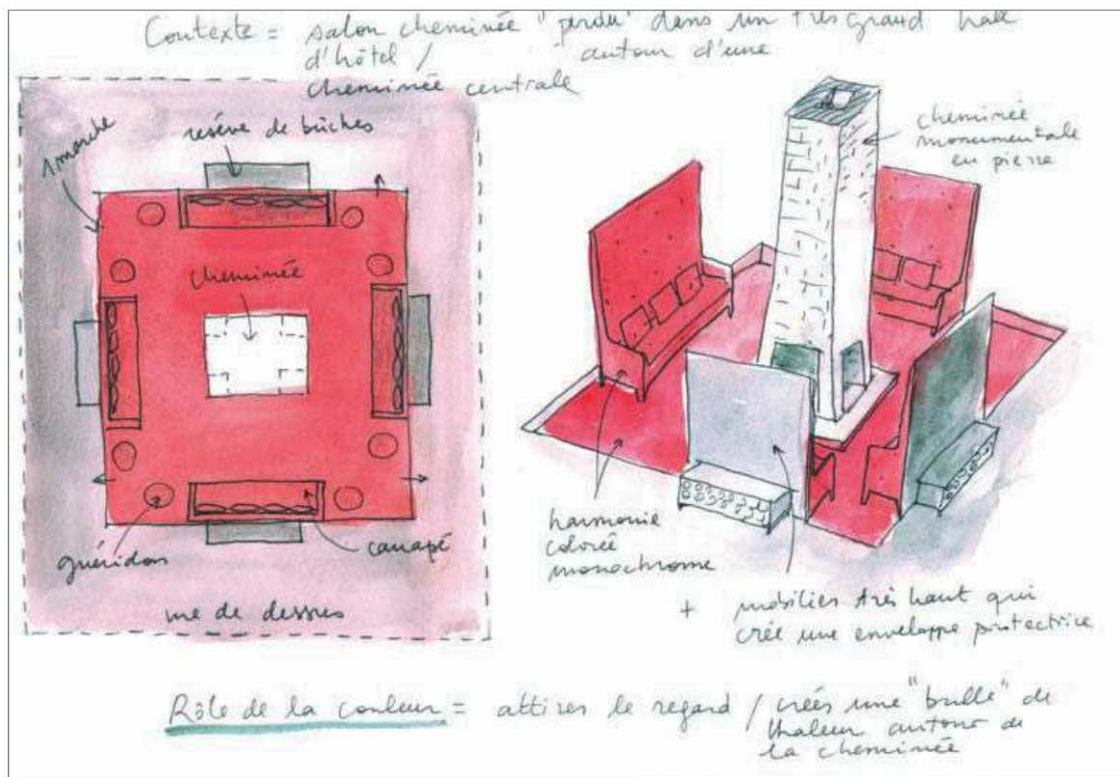 Contexte = salon cheminée "perdu" dans un très grand hall
d'hôtel / autour d'une
cheminée centrale
1 marche
resève de bûches
cheminée
guéridon
canapé
vue de dessus
cheminée
monumentale
en pierre
harmonie
colorée
monochrome
+ mobilier très haut qui
crée une enveloppe protectrice
Rôle de la couleur = attirer le regard / créer une "bulle" de
chaleur autour de
la cheminée